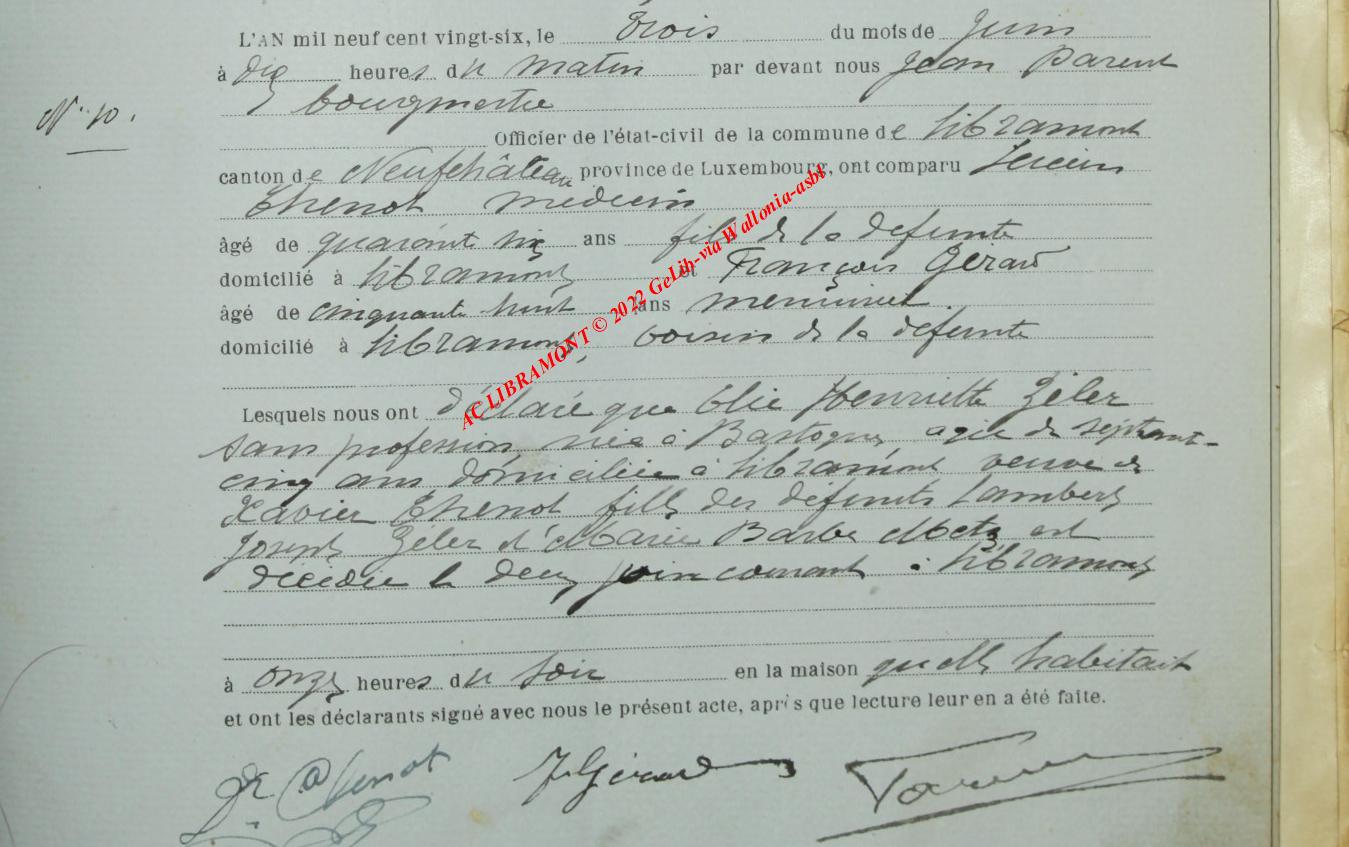 L'AN mil neuf cent vingt-six, le trois du mois de juin
à dix heures du matin par devant nous Jean Parent
bourgmestre
N° 10.
Officier de l'état-civil de la commune de Libramont
canton de Neufchâteau province de Luxembourg, ont comparu Lucien
Thenot médecin
âgé de quarante six ans fils de la défunte
domicilié à Libramont et François Gérard
âgé de cinquante huit ans menuisier
domicilié à Libramont, voisin de la défunte
Lesquels nous ont déclaré que Elie Henriette Zéler
sans profession, née à Bastogne, agée de septante-
cinq ans domiciliée à Libramont veuve de
Xavier Thenot fille des défunts Lambert
Joseph Zéler et Marie Barbe Metz est
décédée le deux juin courant à Libramont
à onze heures du soir en la maison quelle habitait
et ont les déclarants signé avec nous le présent acte, après que lecture leur en a été faite.
Dr Thenot JGérard Parent
AC LIBRAMONT © 2022 GeLih-via Wallonia-asbl